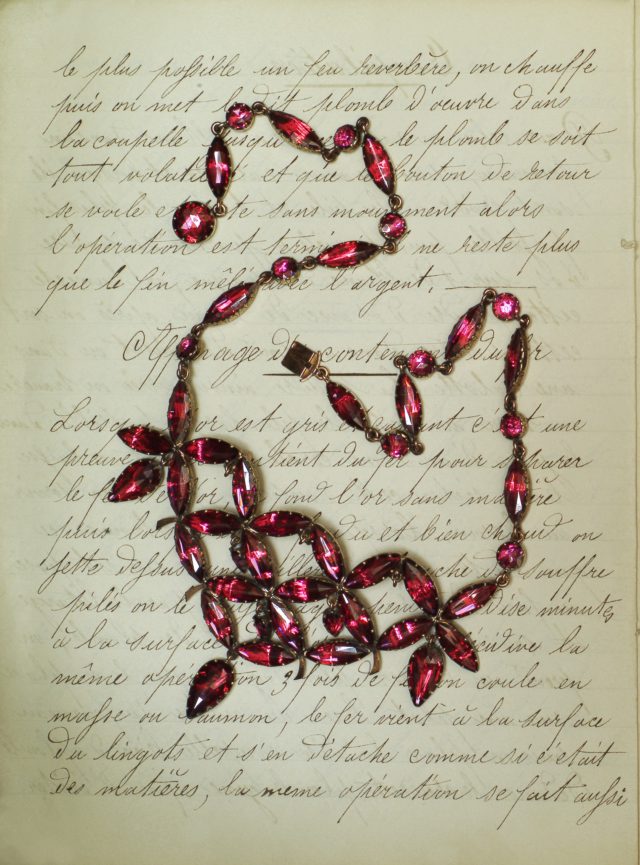 le plus possible un feu reverbère, on chauffe
puis on met le dit plomb d'œuvre dans
la coupelle jusqu' le plomb se soit
tout et que le bouton de retour
se voile et sans mouvement alors
l'opération est ne reste plus
que le fin mêlé avec l'argent.
Affinage contenant du fer
Lorsque l'or est gris c'est une
preuve du fer pour séparer
le fond l'or sans matière
puis et bien chaud on
jette dessus de souffre
pilés on le dise minutes
à la surface la
même opération 3 fois de on coule en
masse ou saumon, le fer vient à la surface
du lingots et s'en détache comme si c'était
des matières, la meme opération se fait aussi